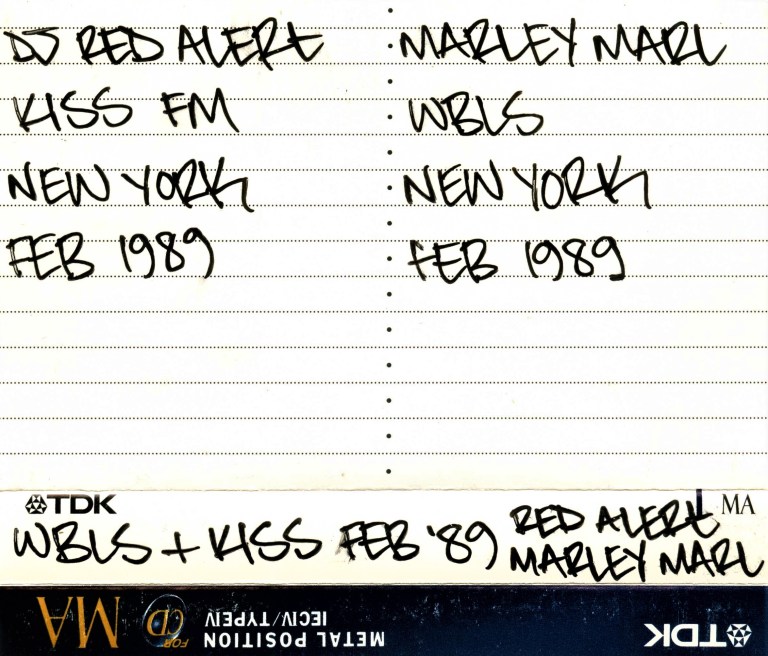 DJ RED ALERT
KISS FM
NEW YORK
FEB 1989
MARLEY MARL
WBLS
NEW YORK
FEB 1989
TDK
MA
WBLS + KISS FEB '89
RED ALERT
MARLEY MARL
TDK
METAL POSITION
IECIV/TYPEIV
FOR
CD
MA